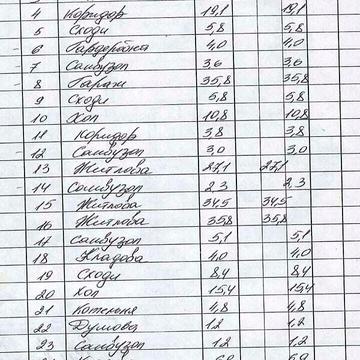 4 Коридор 19,1 19,1
5 Сходи 5,8 5,8
6 Гардеробна 4,0 4,0
7 Санвузол 3,6 3,6
8 Гараж 35,8 35,8
9 Сходи 5,8 5,8
10 Хол 10,8 10,8
11 Коридор 3,8 3,8
12 Санвузол 3,0 3,0
13 Житлова 27,1 27,1
14 Санвузол 2,3 2,3
15 Житлова 34,5 34,5
16 Житлова 35,8 35,8
17 Санвузол 5,1 5,1
18 Кладова 4,0 4,0
19 Сходи 8,4 8,4
20 Хол 15,4 15,4
21 Котельня 4,8 4,8
22 Душова 1,2 1,2
23 Санвузол 1,2 1,2